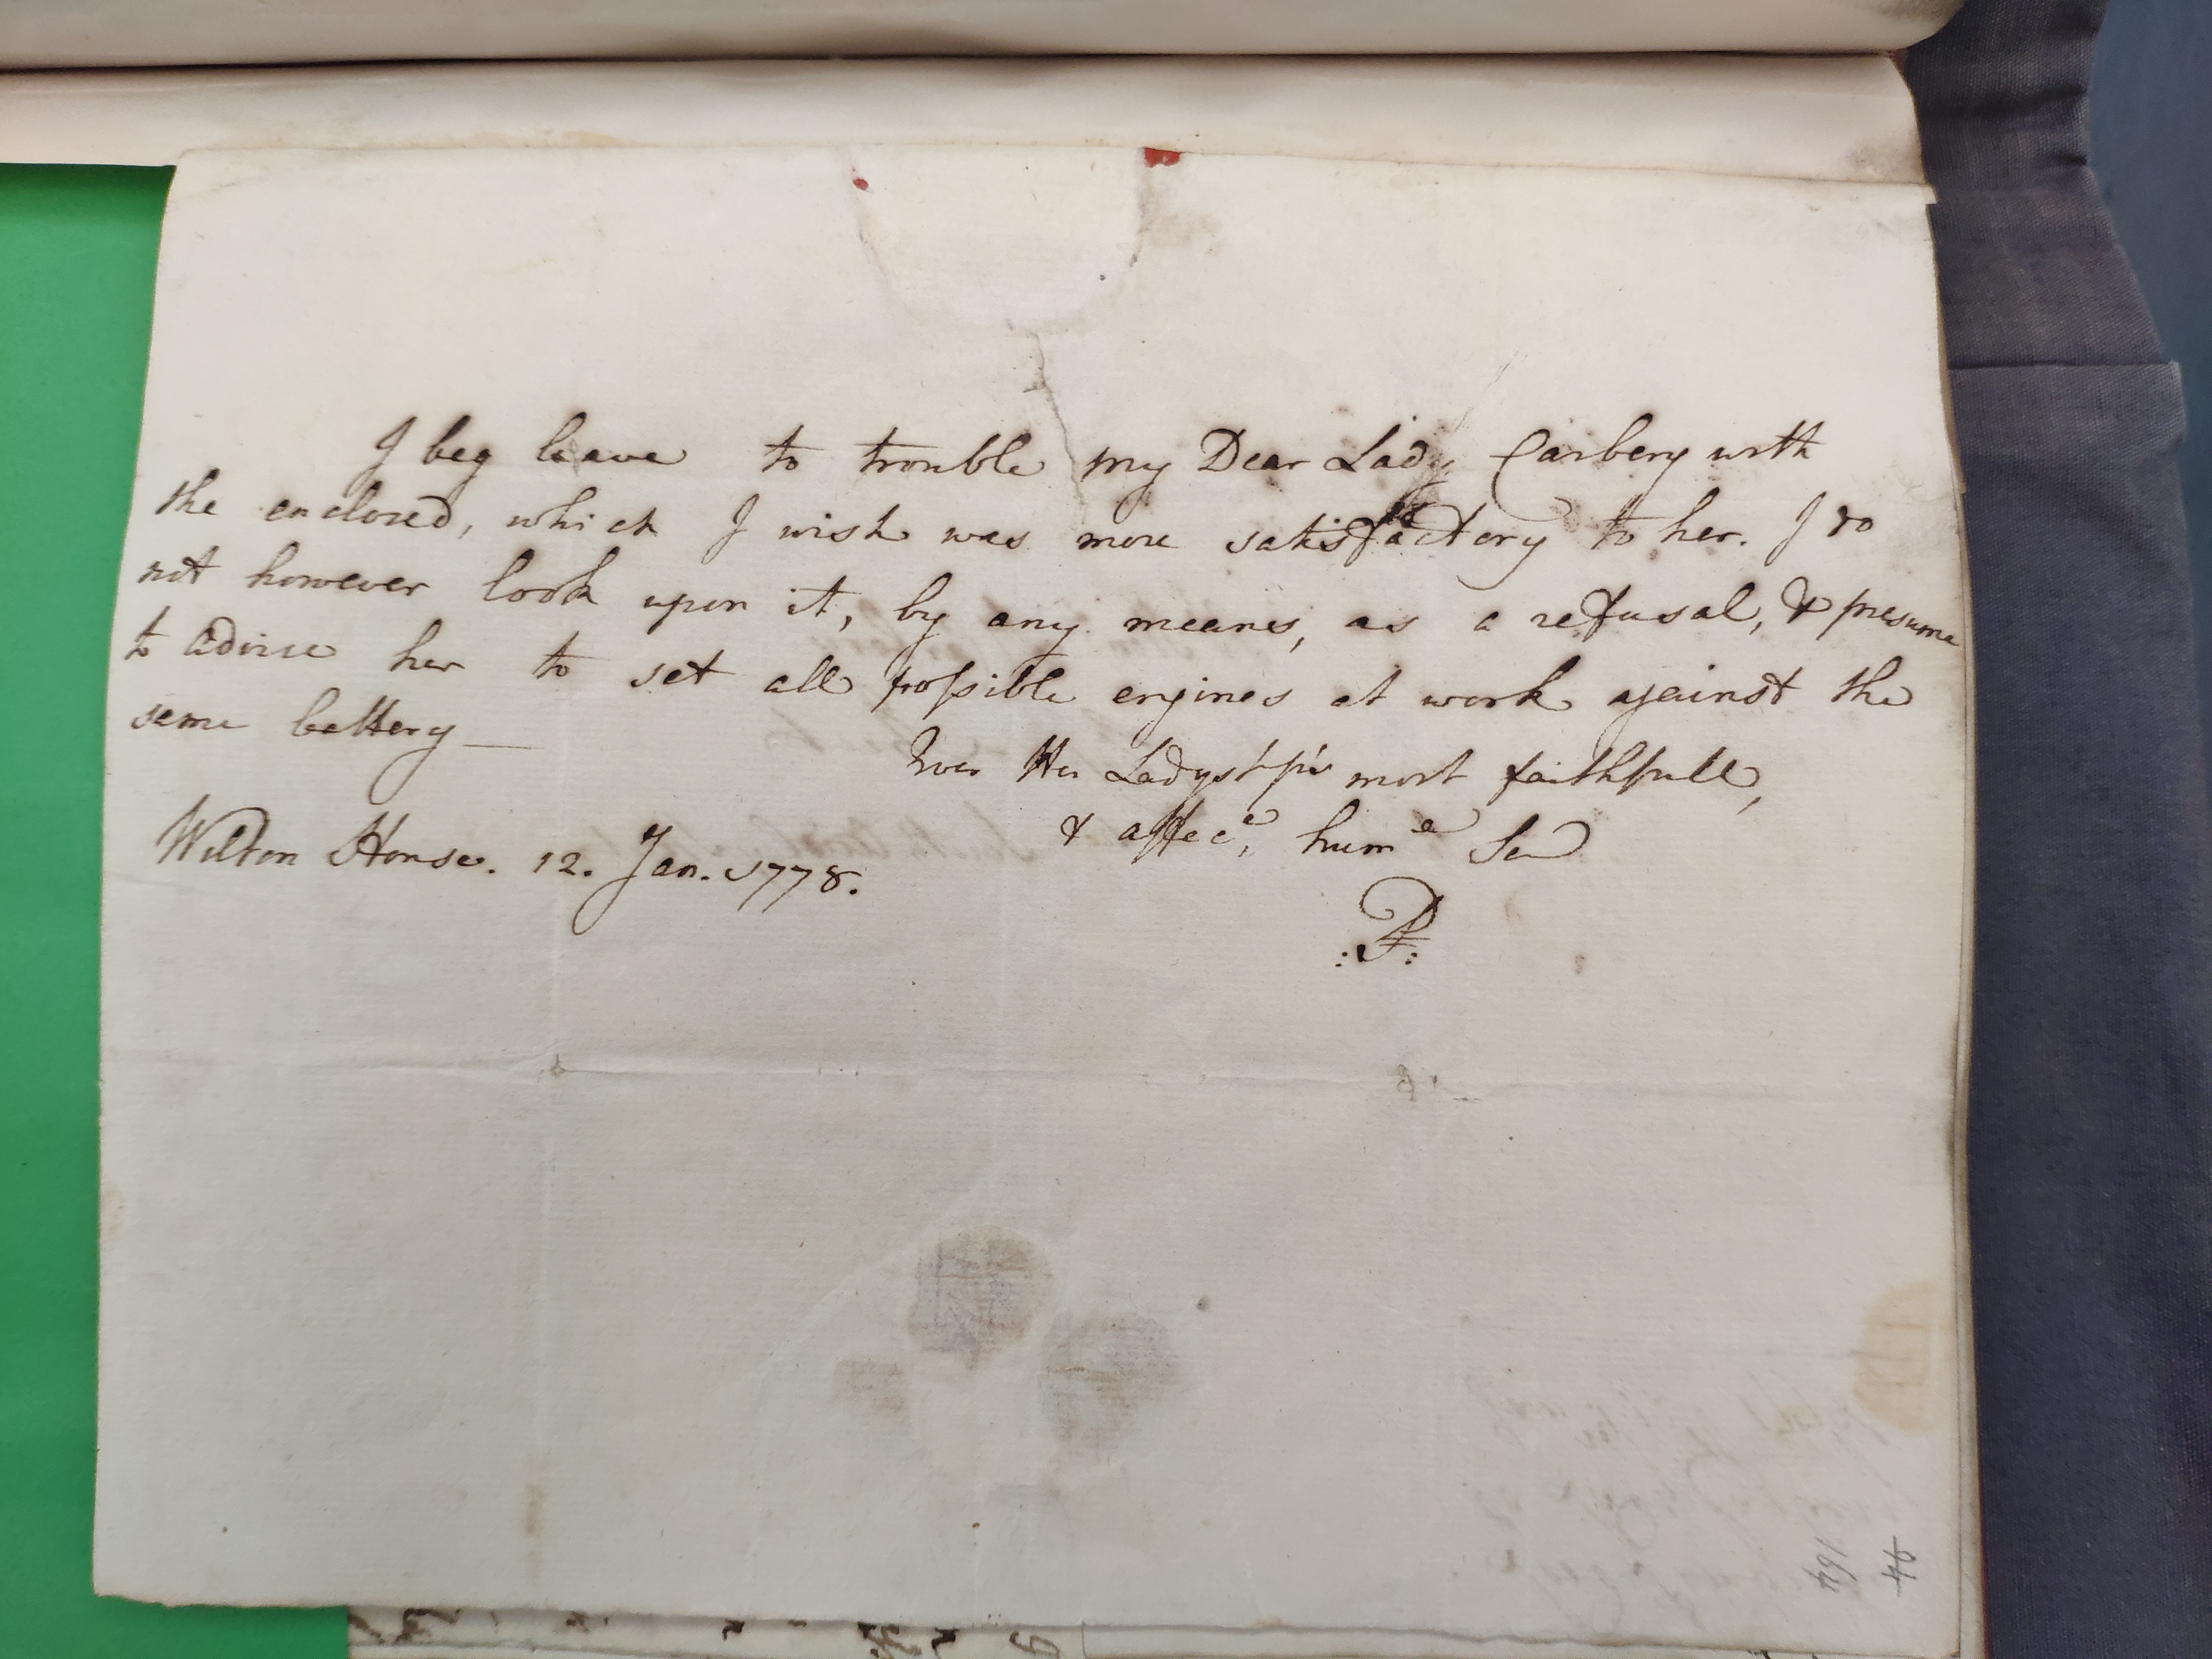 I beg leave to trouble my Dear Lady Carbery with
the enclosed, which I wish was more satisfactory to her. I do
not however look upon it, by any means, as a refusal, & presume
to advise her to set all possible engines at work against the
same battery —
Ever Her Ladyship's most faithfull,
& affecte, humle Ser
Wilton House. 12. Jan. 1778.
:P:
164
94